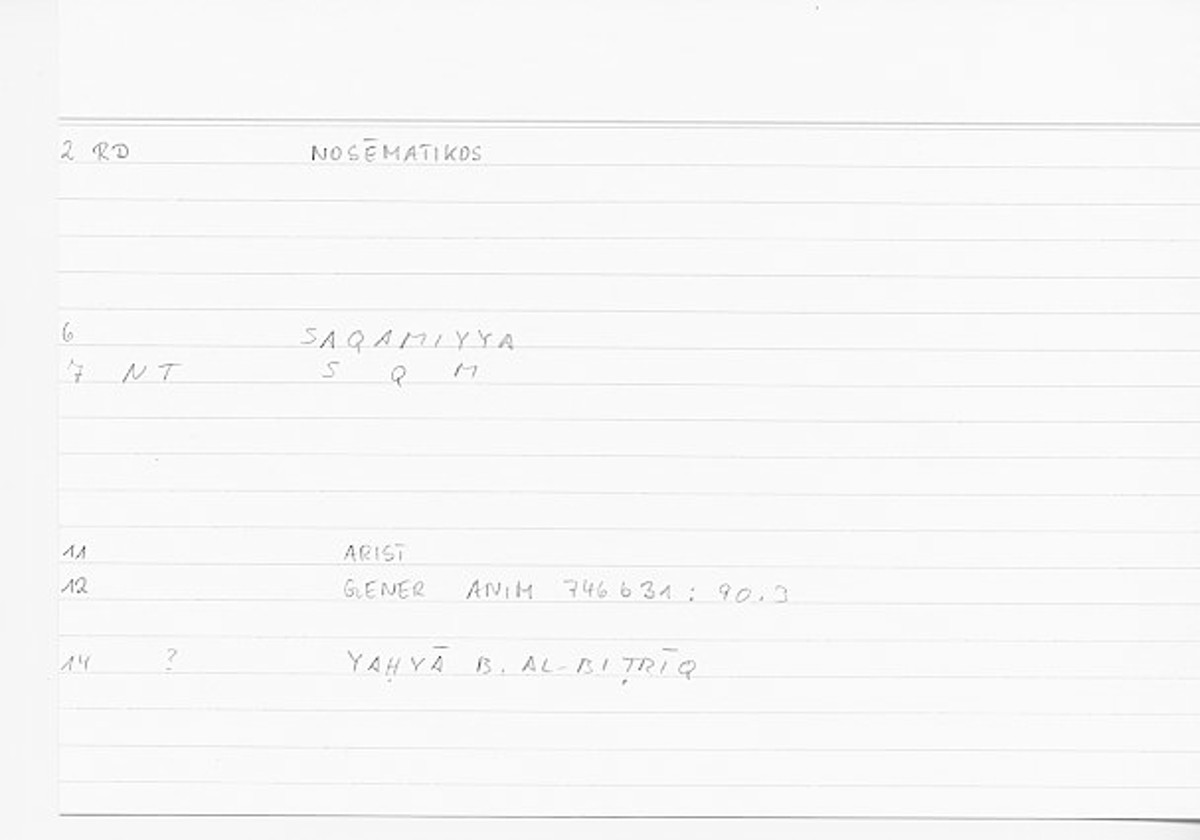 2 RD NOSĒMATIKOS
6 SAQAMIYYA
7 NT S Q M
11 ARIST
12 GENER ANIM 746 b 31 : 90.3
14 ? YAḤYĀ B. AL-BIṬRĪQ